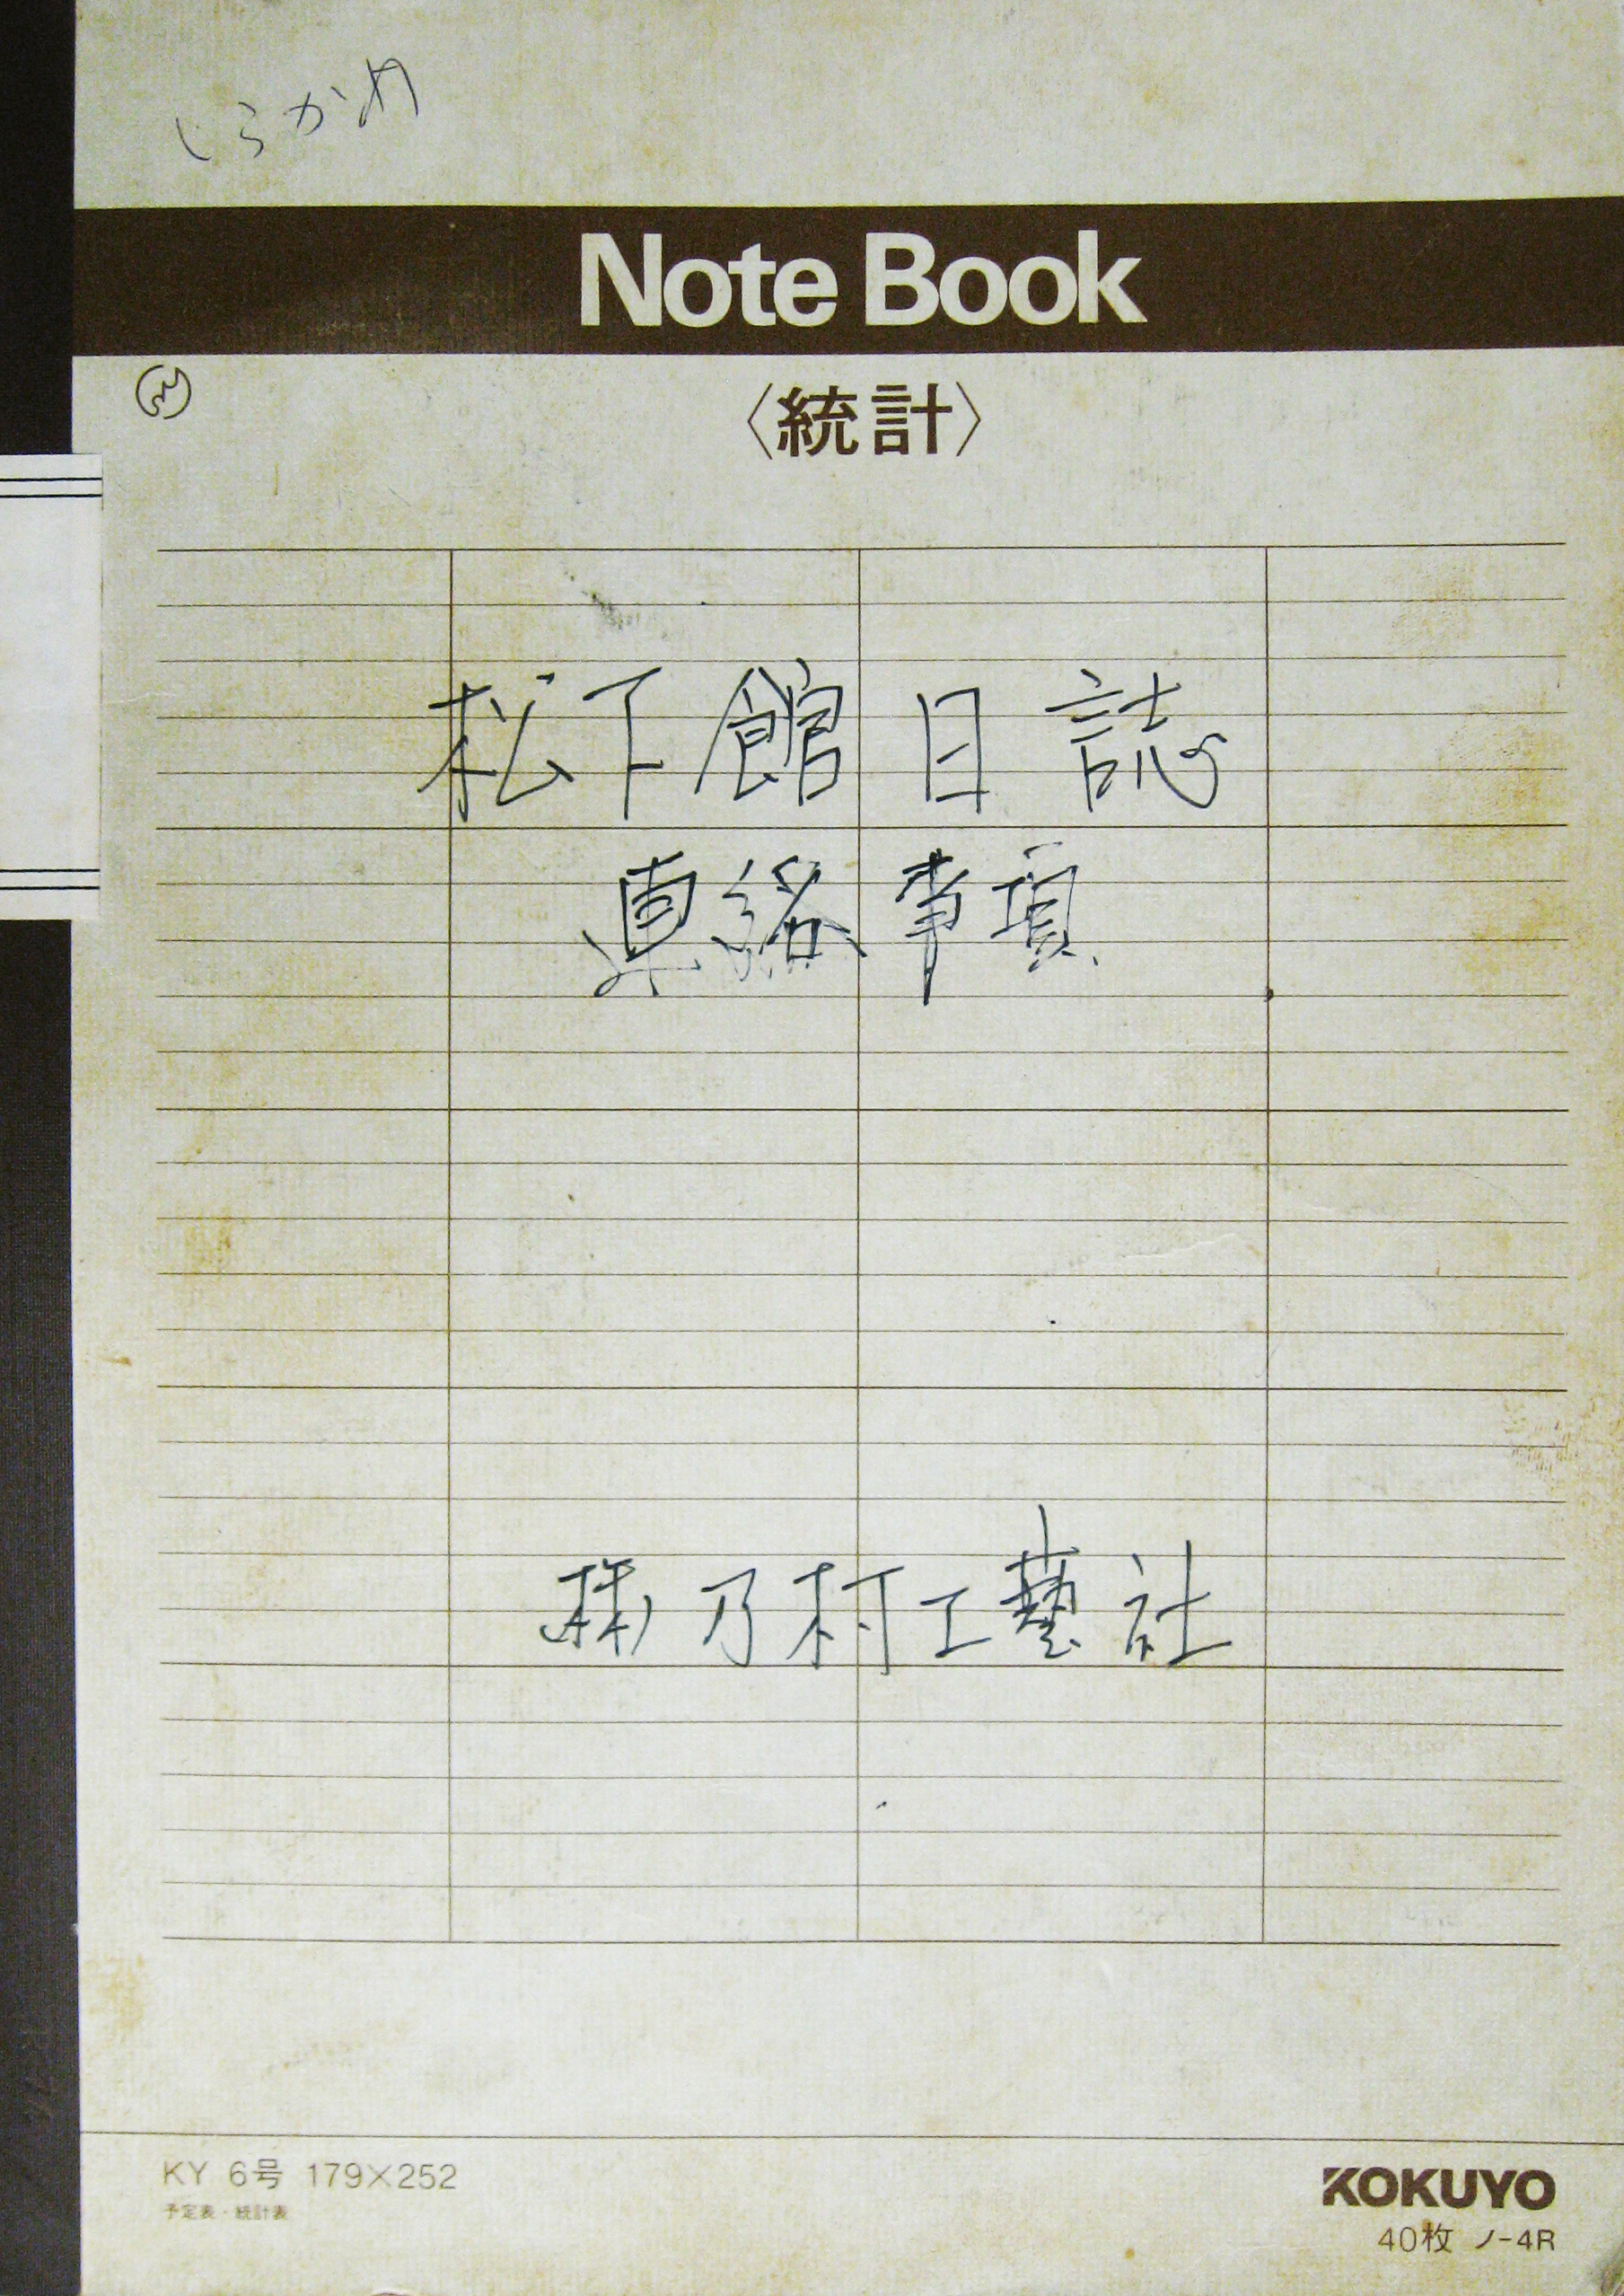 しらかわ
Note Book
〈統計〉
松下館日誌
連絡事項
㈱乃村工藝社
KY 6号 179×252
予定表・統計表
KOKUYO
40枚 ノ-4R